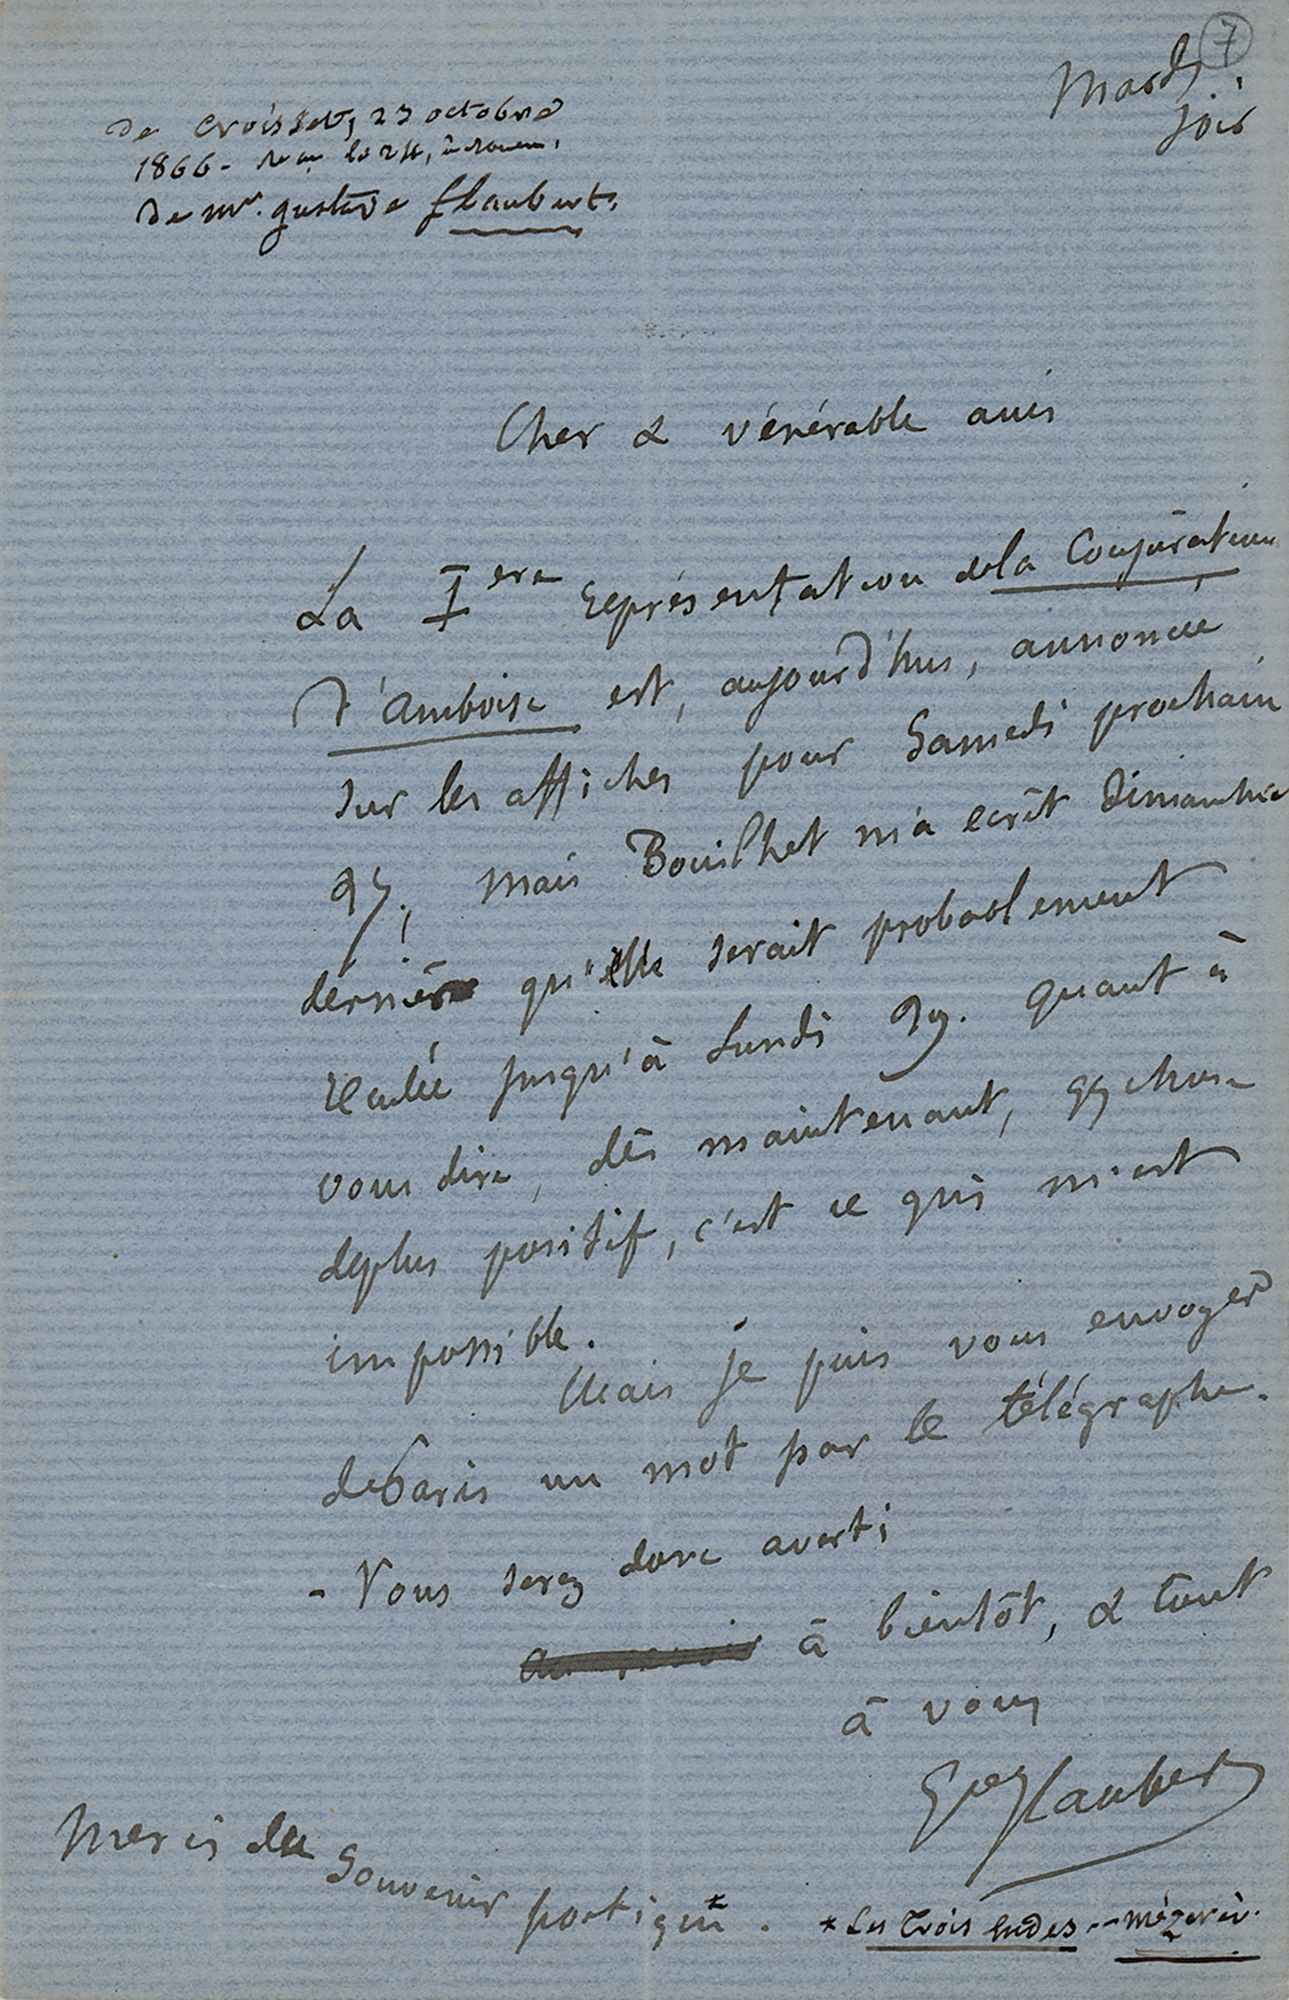 7
Mardi
soir
de croisset, 23 octobre
1866 - reçu le 24, à rouen,
de mr. gustave flaubert,
Cher & vénérable ami
La Iere représentation de la Conjuration
d'Amboise est, aujourd'hui, annoncée
sur les affiches pour Samedi prochain
27, mais Bouilhet m'a ecrit Dimanche
dernier qu'elle serait probablement
reculée jusqu'à Lundi 29. quant à
vous dire, dès maintenant, qq chose
de plus positif, c'est ce qui m'est
impossible.
Mais je puis vous envoyer
de Paris un mot par le télégraphe.
- Vous serez donc averti
au revoir à bientôt, & tout
à vous
Gve Flaubert
Merci du
Souvenir poétique* .
* Les Trois Indes -- mézerai.